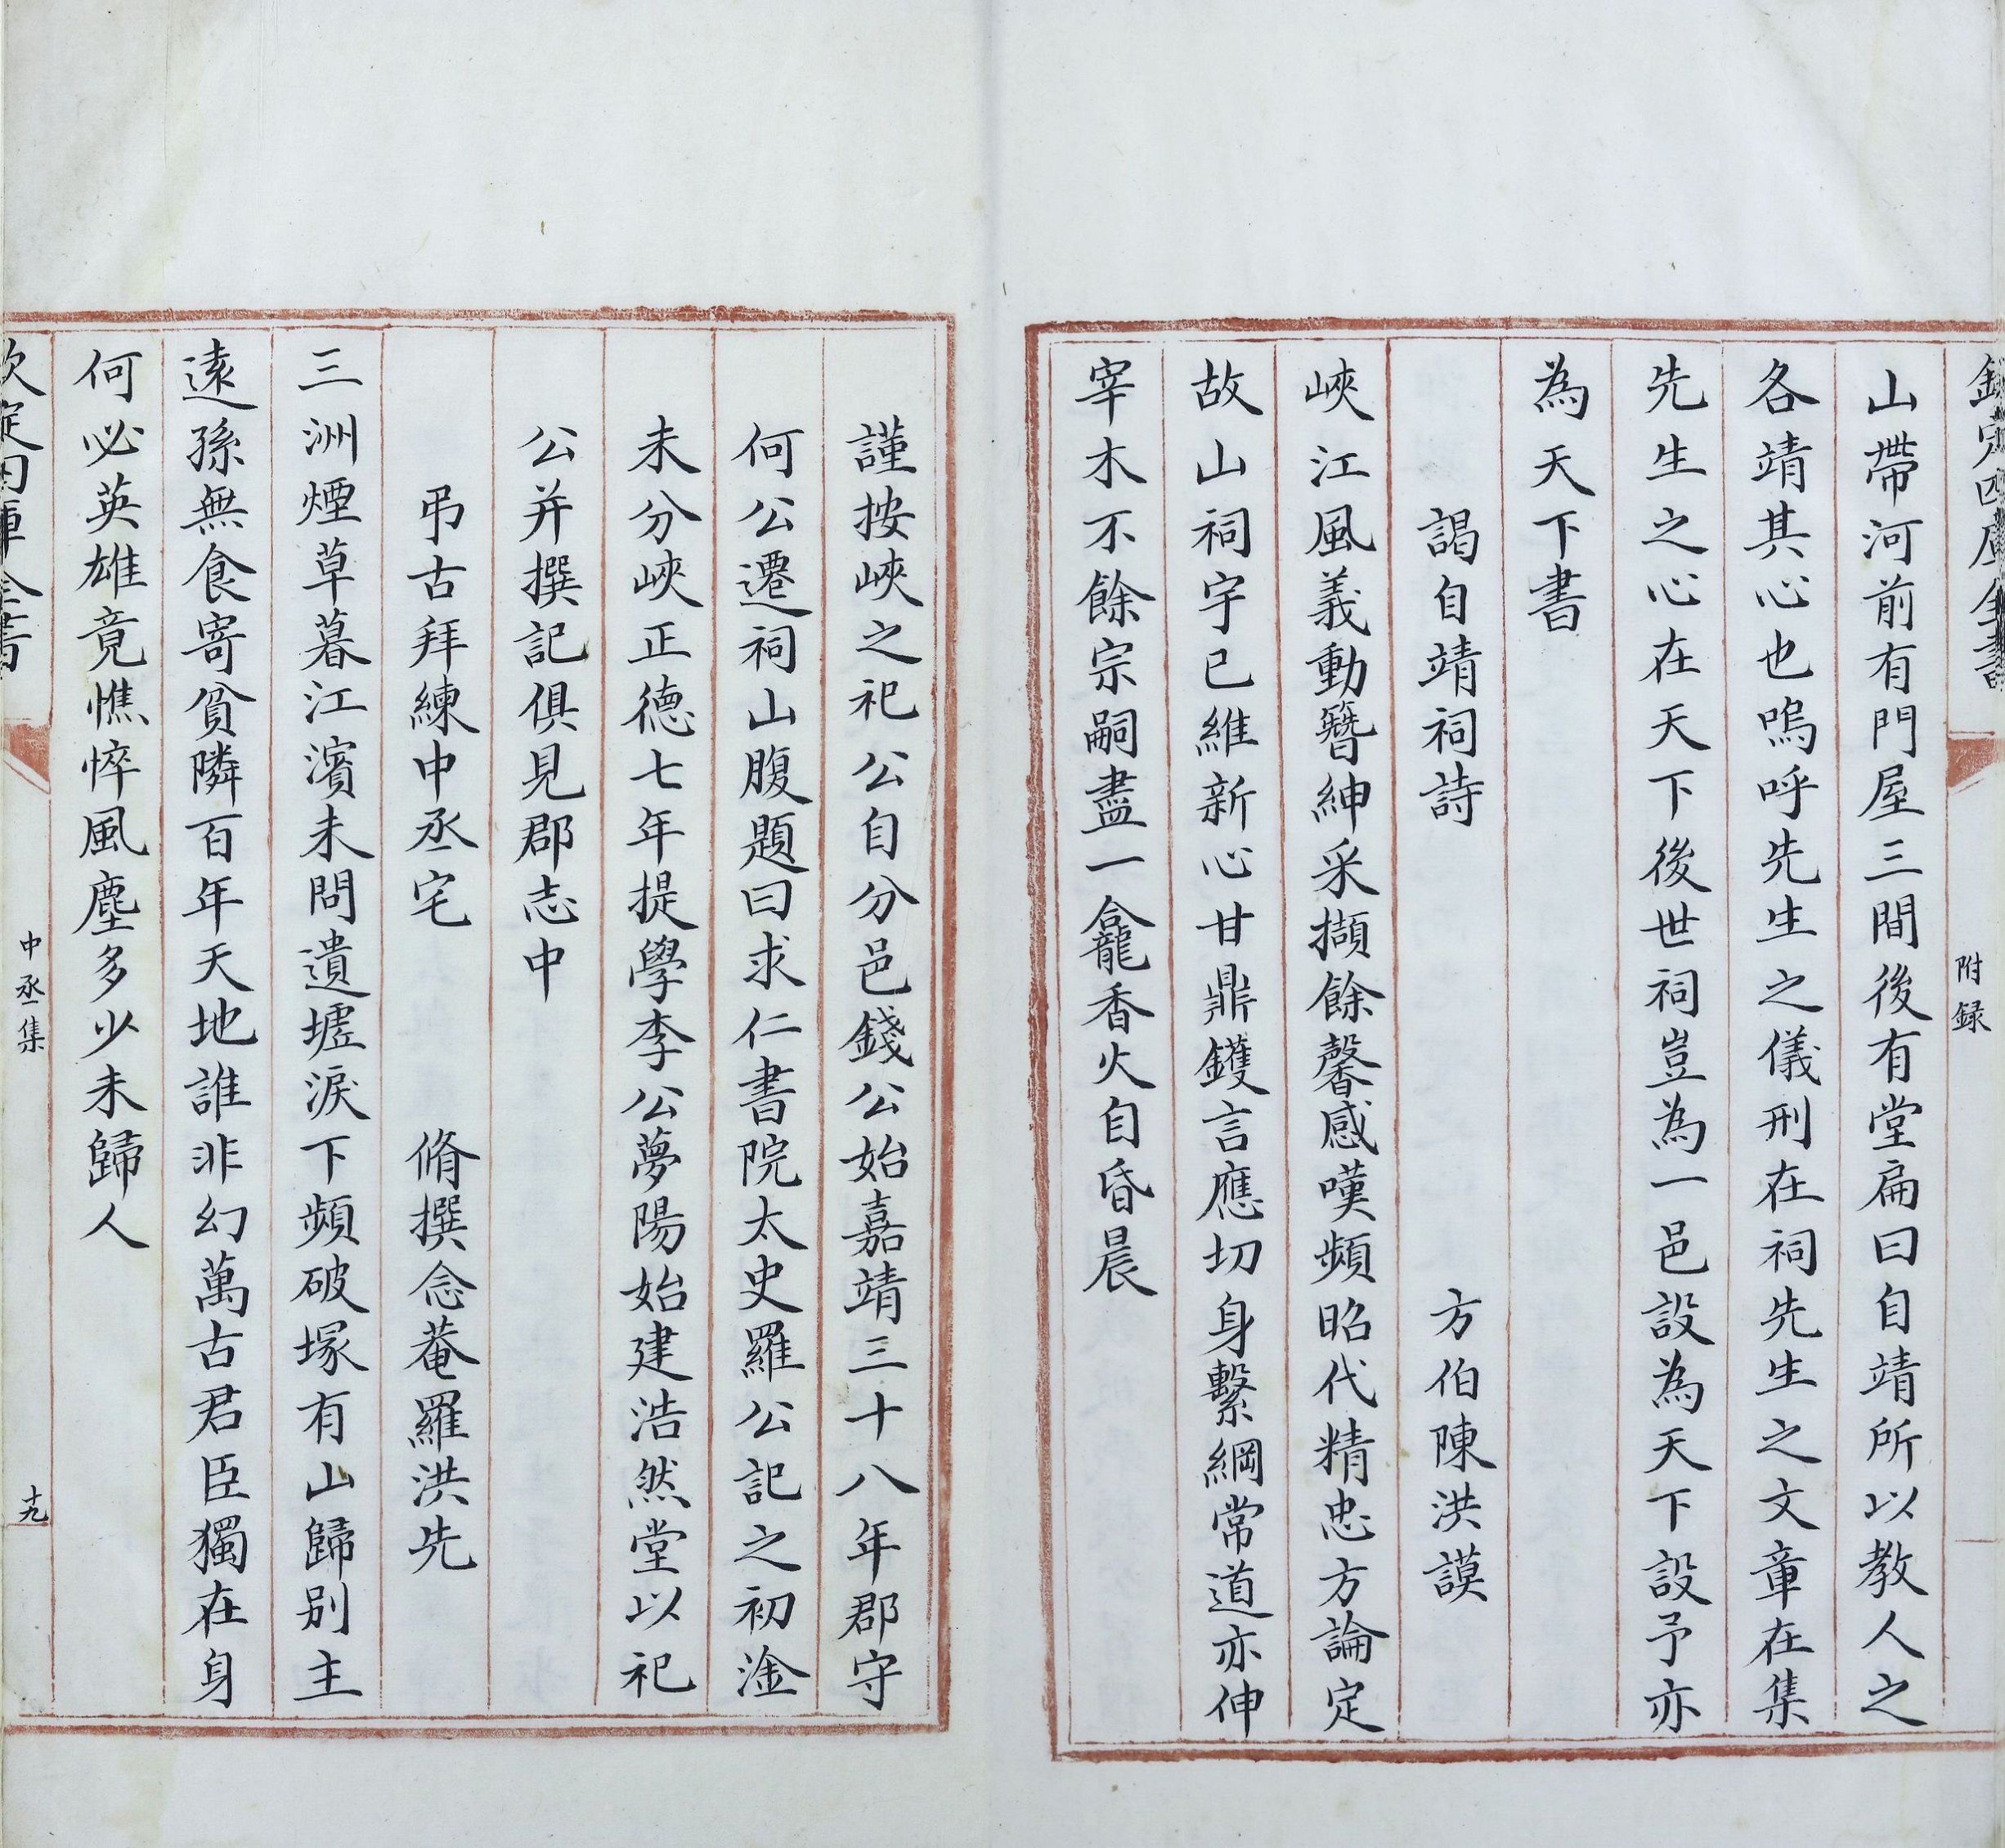 欽定四庫全書
附録
山帶河前有門屋三間後有堂扁曰自靖所以教人之
各靖其心也嗚呼先生之儀刑在祠先生之文章在集
先生之心在天下後世祠豈為一邑設為天下設予亦
為天下書
謁自靖祠詩 方伯陳洪謨
峽江風義動簪紳采擷餘馨感嘆頻昭代精忠方論定
故山祠宇已維新心甘鼎鑊言應切身繫綱常道亦伸
宰木不餘宗嗣盡一龕香火自昏晨
謹按峽之祀公自分邑錢公始嘉靖三十八年郡守
何公遷祠山腹題曰求仁書院太史羅公記之初淦
未分峽正德七年提學李公夢陽始建浩然堂以祀
公并撰記俱見郡志中
弔古拜練中丞宅 脩撰念菴羅洪先
三洲煙草暮江濱未問遺墟淚下頻破塚有山歸別主
遠孫無食寄貧隣百年天地誰非幻萬古君臣獨在身
何必英雄竟憔悴風塵多少未歸人
欽定四庫全書
中丞集
十九